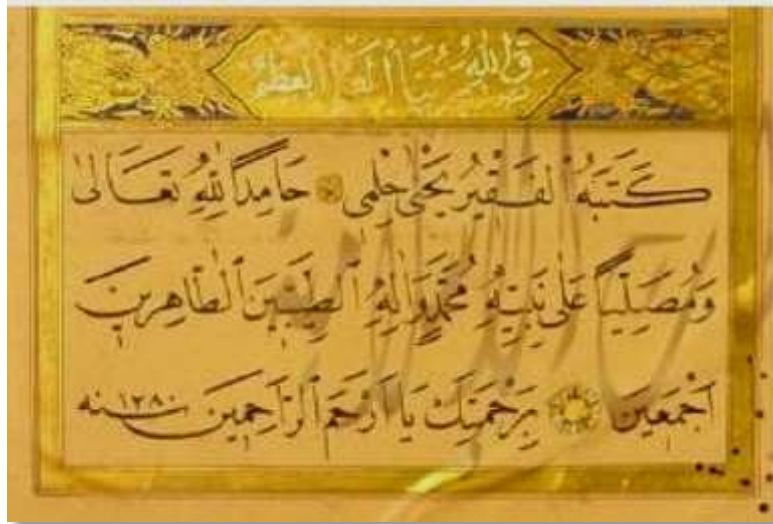 العظيم
كَتَبَهُ الفَقِيرُ يَحْيٰى حِلْمِى حَامِداً لِلّٰهِ تَعَالٰى
وَمُصَلِّياً عَلٰى نَبِيِّهِ مُحَمَّدٍ وَاٰلِهِ الطَّيِّبِينَ الطَّاهِرِينَ
اَجْمَعِينَ بِرَحْمَتِكَ يَا اَرْحَمَ الرَّاحِمِينَ سنه ١٢٨٠